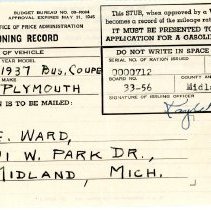 BUDGET BUREAU NO. 08-R084
APPROVAL EXPIRES MAY 31, 1945
OFFICE OF PRICE ADMINISTRATION
NING RECORD
OF VEHICLE
YEAR MODEL
1937 BUS. COUPE
MAKE
PLYMOUTH
IS TO BE MAILED:
E. WARD,
W. PARK DR.,
MIDLAND, MICH.
This STUB, when approved by a
becomes a record of the mileage rat
IT MUST BE PRESENTED TO
APPLICATION FOR A GASOLI
DO NOT WRITE IN
SERIAL NO. OF RATION ISSUED
0000712
BOARD NO.
COUNTY AN
33-56
Midl
SIGNATURE OF ISSUING OFFICER